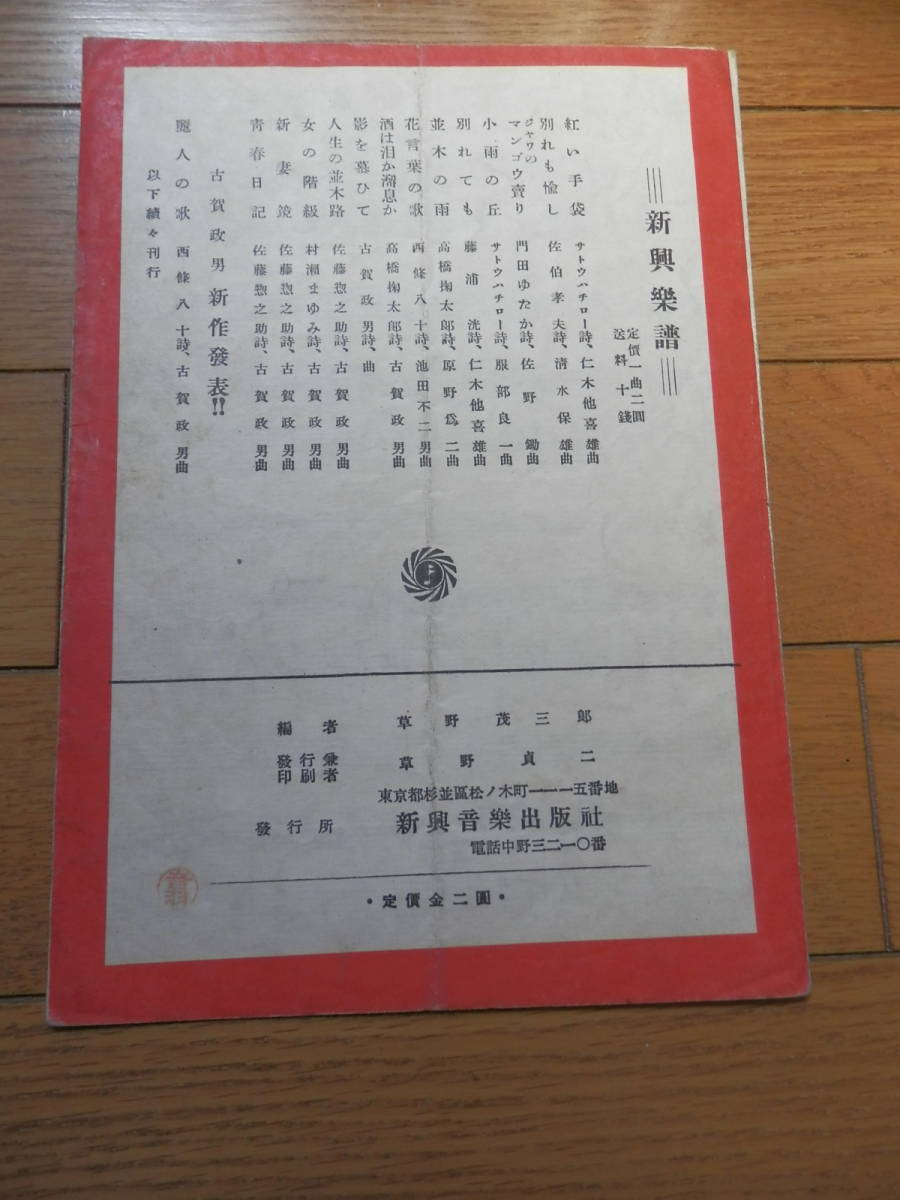 新興樂譜
定價一曲二圓
送料十錢
紅い手袋 サトウハチロー詩、仁木他喜雄曲
別れも愉し 佐伯孝夫詩、清水保雄曲
ジヤワのマンゴウ賣り 門田ゆたか詩、佐野鋤曲
小雨の丘 サトウハチロー詩、服部良一曲
別れても 藤浦洸詩、仁木他喜雄曲
並木の雨 高橋掬太郎詩、原野爲二曲
花言葉の歌 西條八十詩、池田不二男曲
酒は泪か溜息か 高橋掬太郎詩、古賀政男曲
影を慕ひて 古賀政男詩、曲
人生の並木路 佐藤惣之助詩、古賀政男曲
女の階級 村瀬まゆみ詩、古賀政男曲
新妻鏡 佐藤惣之助詩、古賀政男曲
青春日記 佐藤惣之助詩、古賀政男曲
古賀政男新作發表!!
麗人の歌 西條八十詩、古賀政男曲
以下續々刊行
編者 草野茂三郎
發行兼印刷者 草野貞二
東京都杉並區松ノ木町一一一五番地
發行所 新興音樂出版社
電話中野三二一〇番
・定價金二圓・